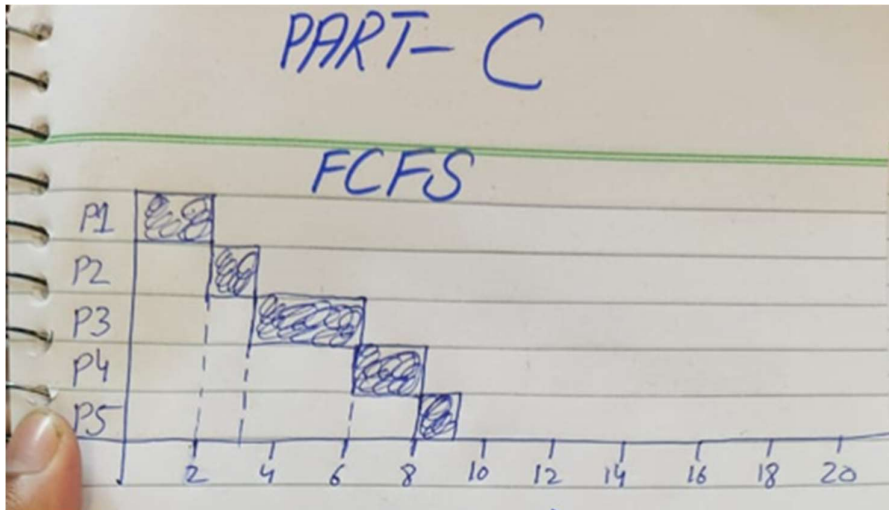 PART- C
FCFS
P1
P2
P3
P4
P5
2 4 6 8 10 12 14 16 18 20